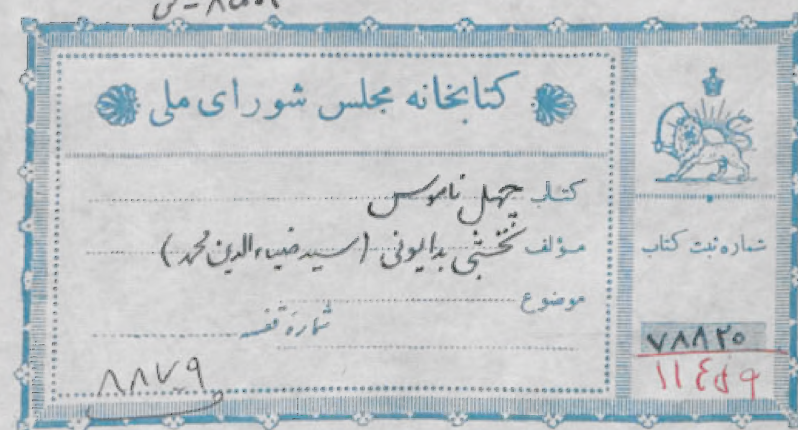 کتابخانه مجلس شورای ملی
کتاب چهل ناموس
مؤلف نخشبی بدایونی (سید ضیاء الدین محمد)
موضوع
شماره قفسه
۸۸۷۹
شماره ثبت کتاب
۷۸۸۲۰